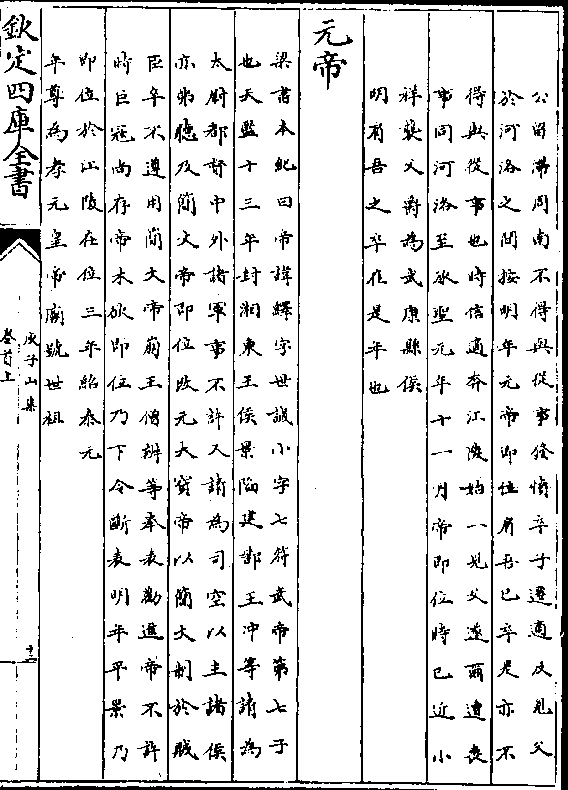 公留滯周南不得與從事發憤卒子遷適反見父
於河洛之間按明年元帝即位肩吾已卒是亦不
得與從事也時信適奔江陵始一見父遂爾遭喪
事同河洛至承聖元年十一月帝即位時已近小
祥襲父爵為武康縣侯
明肩吾之卒在是年也
元帝
梁書本紀曰帝諱繹字世誠小字七符武帝第七子
也天監十三年封湘東王侯景陷建鄴王沖等請為
太尉都督中外諸軍事不許又請為司空以主諸侯
亦弗聽及簡文帝即位改元大寶帝以簡文制於賊
臣卒不遵用簡文帝崩王僧辨等奉表勸進帝不許
時巨寇尚存帝未欲即位乃下令斷表明年平景乃
即位於江陵在位三年紹泰元
年尊為孝元皇帝廟號世祖
欽定四庫全書
庾子山集
卷首上
十二